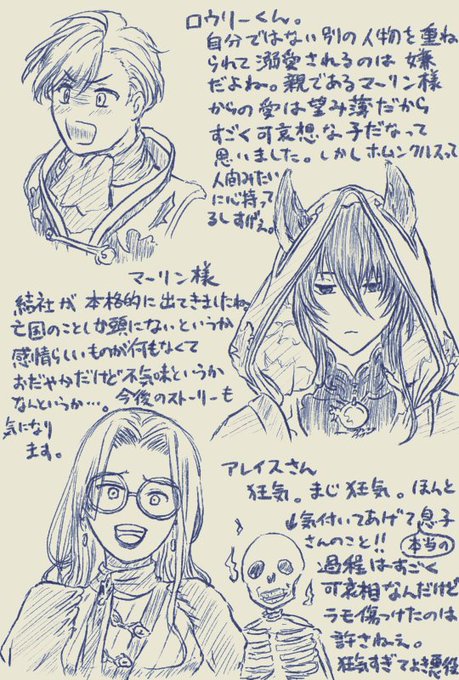 ロウリーくん。
自分ではない別の人物を重ね
られて溺愛されるのは嫌
だよね。親であるマーリン様
からの愛は望み薄だから
すごく可哀想な子だなって
思いました。しかしホムンクルスって
人間みたい
に心持って
るしすげぇ。
マーリン様
結社が本格的に出てきましたね。
亡国のことしか頭にないというか
感情らしいものが何もなくて
おだやかだけど不気味というか
なんというか…。今後のストーリーも
気になり
ます。
アレイスさん
狂気。まじ狂気。ほんと
気付いてあげて息子
さんのこと!! 本当の
過程はすごく
可哀相なんだけど
ラモ傷つけたのは
許さねぇ。
狂気すぎてよき悪役